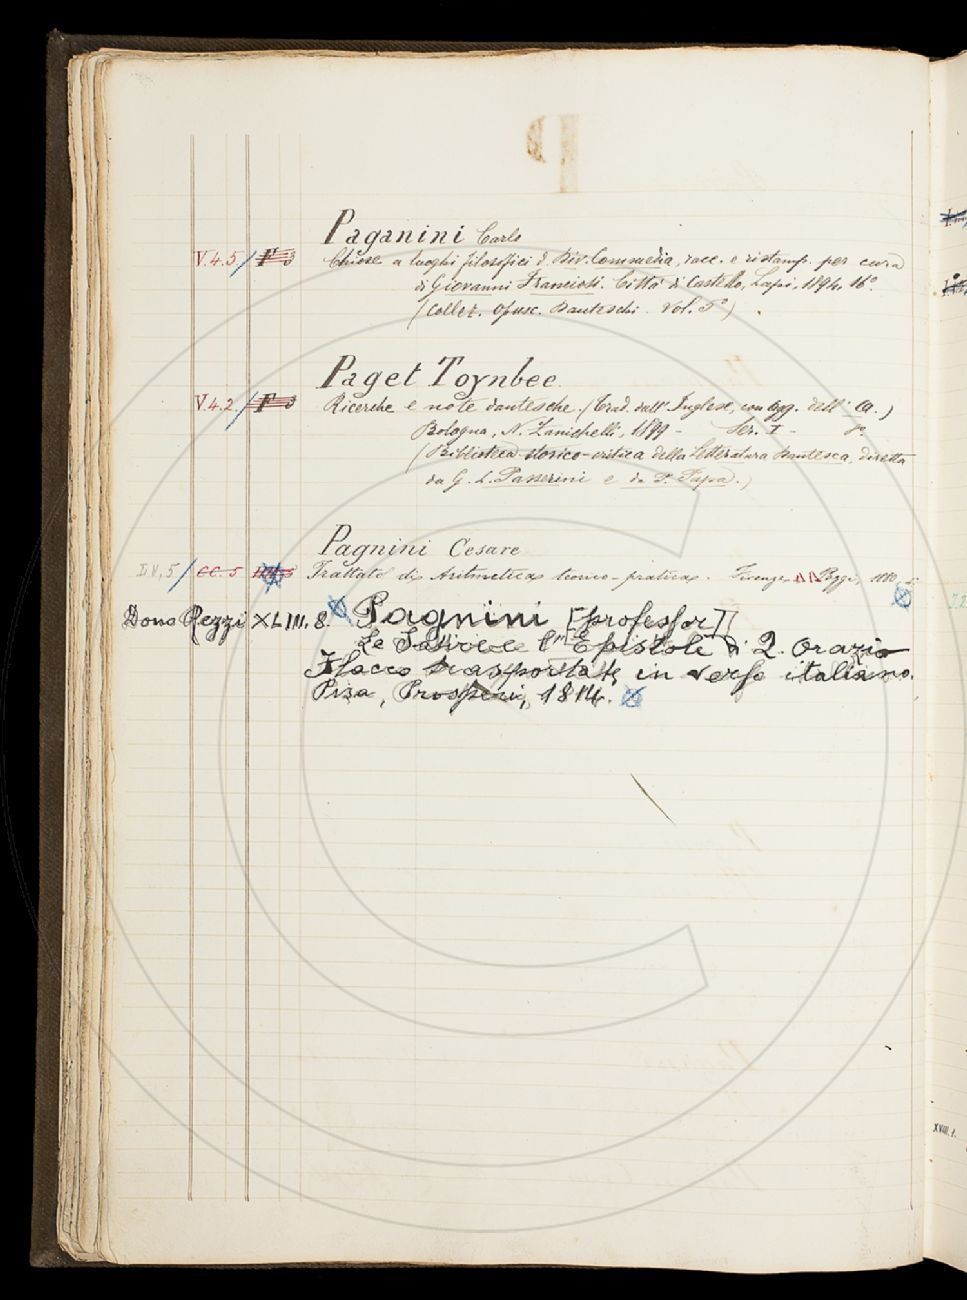 P
Paganini Carlo
V.4.5 / F 3 Chiose a luoghi filosofici d. Div. Commedia, racc. e ristamp. per cura
di Giovanni Franciosi. Città di Castello, Lapi, 1894. 16°.
(Collez. Opusc. Danteschi. Vol. 5°)
Paget Toynbee
V.4.2 / F 3 Ricerche e note dantesche. (Trad. dall' Inglese, con agg. dell' A.)
Bologna, N. Zanichelli, 1899 - Ser. I - 8°
(Biblioteca storico-critica della Letteratura dantesca, diretta
da G. L. Passerini e da P. Papa.)
Pagnini Cesare
/ CC. 5 Trattato di Aritmetica teorico-pratica. Firenze,
Dono Rezzi XLIII. 8. Pagnini [professor]
Le Satire e l' Epistole di Q. Orazio
Flacco trasportate in verso italiano.
Pisa, Prosperi, 1814.
XVIII. 1.